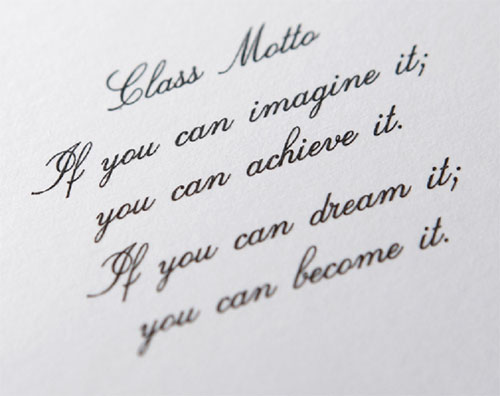 Class Motto
If you can imagine it;
you can achieve it.
If you can dream it;
you can become it.